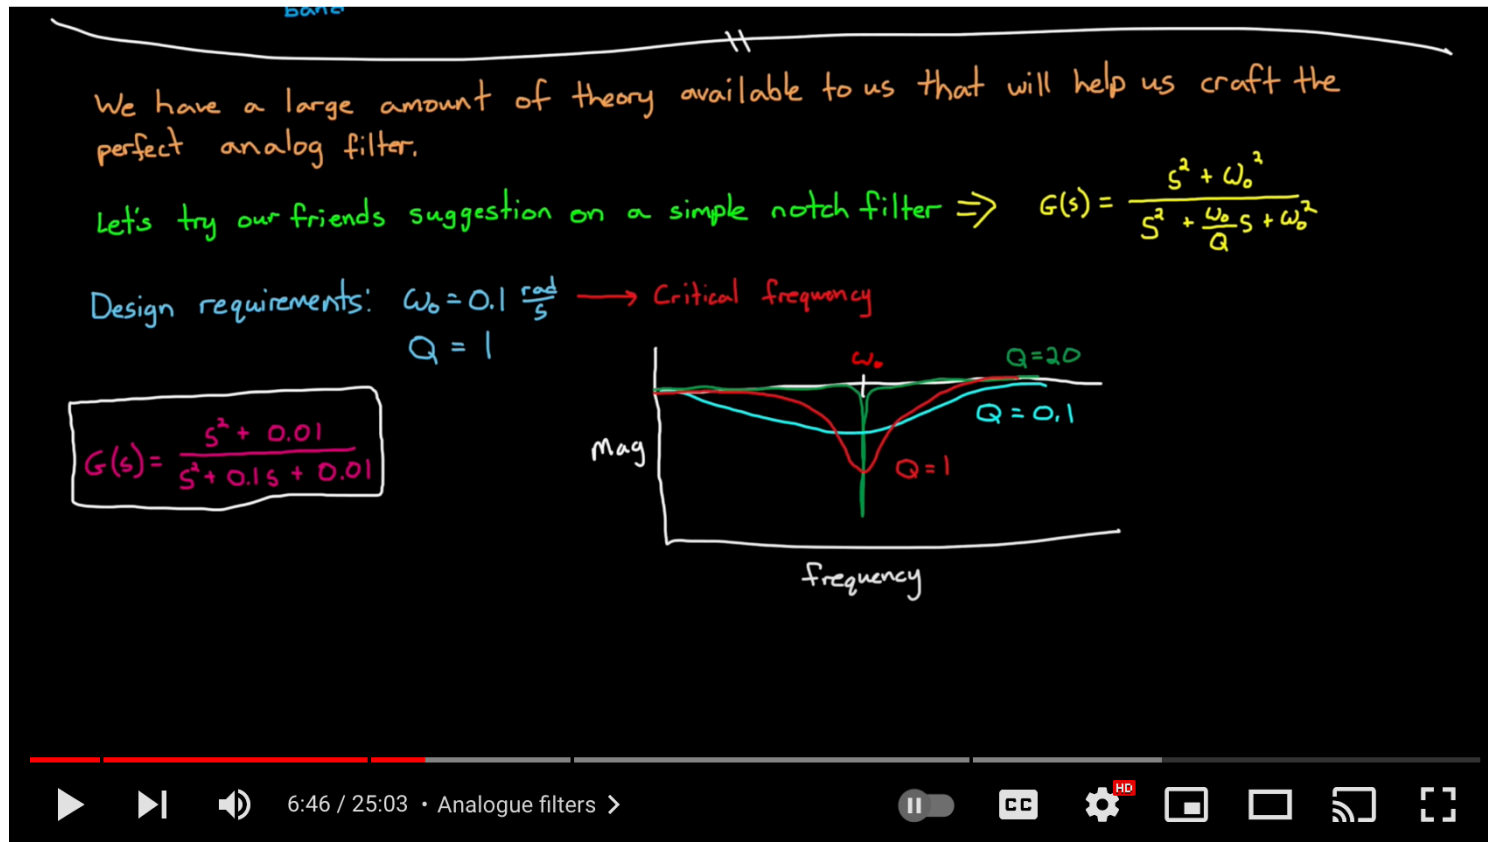 band
We have a large amount of theory available to us that will help us craft the
perfect analog filter.
Let's try our friends suggestion on a simple notch filter ⇒ G(s) = (s² + ω₀²) / (s² + (ω₀/Q)s + ω₀²)
Design requirements: ω₀ = 0.1 rad/s → Critical frequency
Q = 1
ω₀
Q=20
Q = 0.1
G(s) = (s² + 0.01) / (s² + 0.1s + 0.01)
Mag
Q=1
frequency
6:46 / 25:03 • Analogue filters
CC
HD